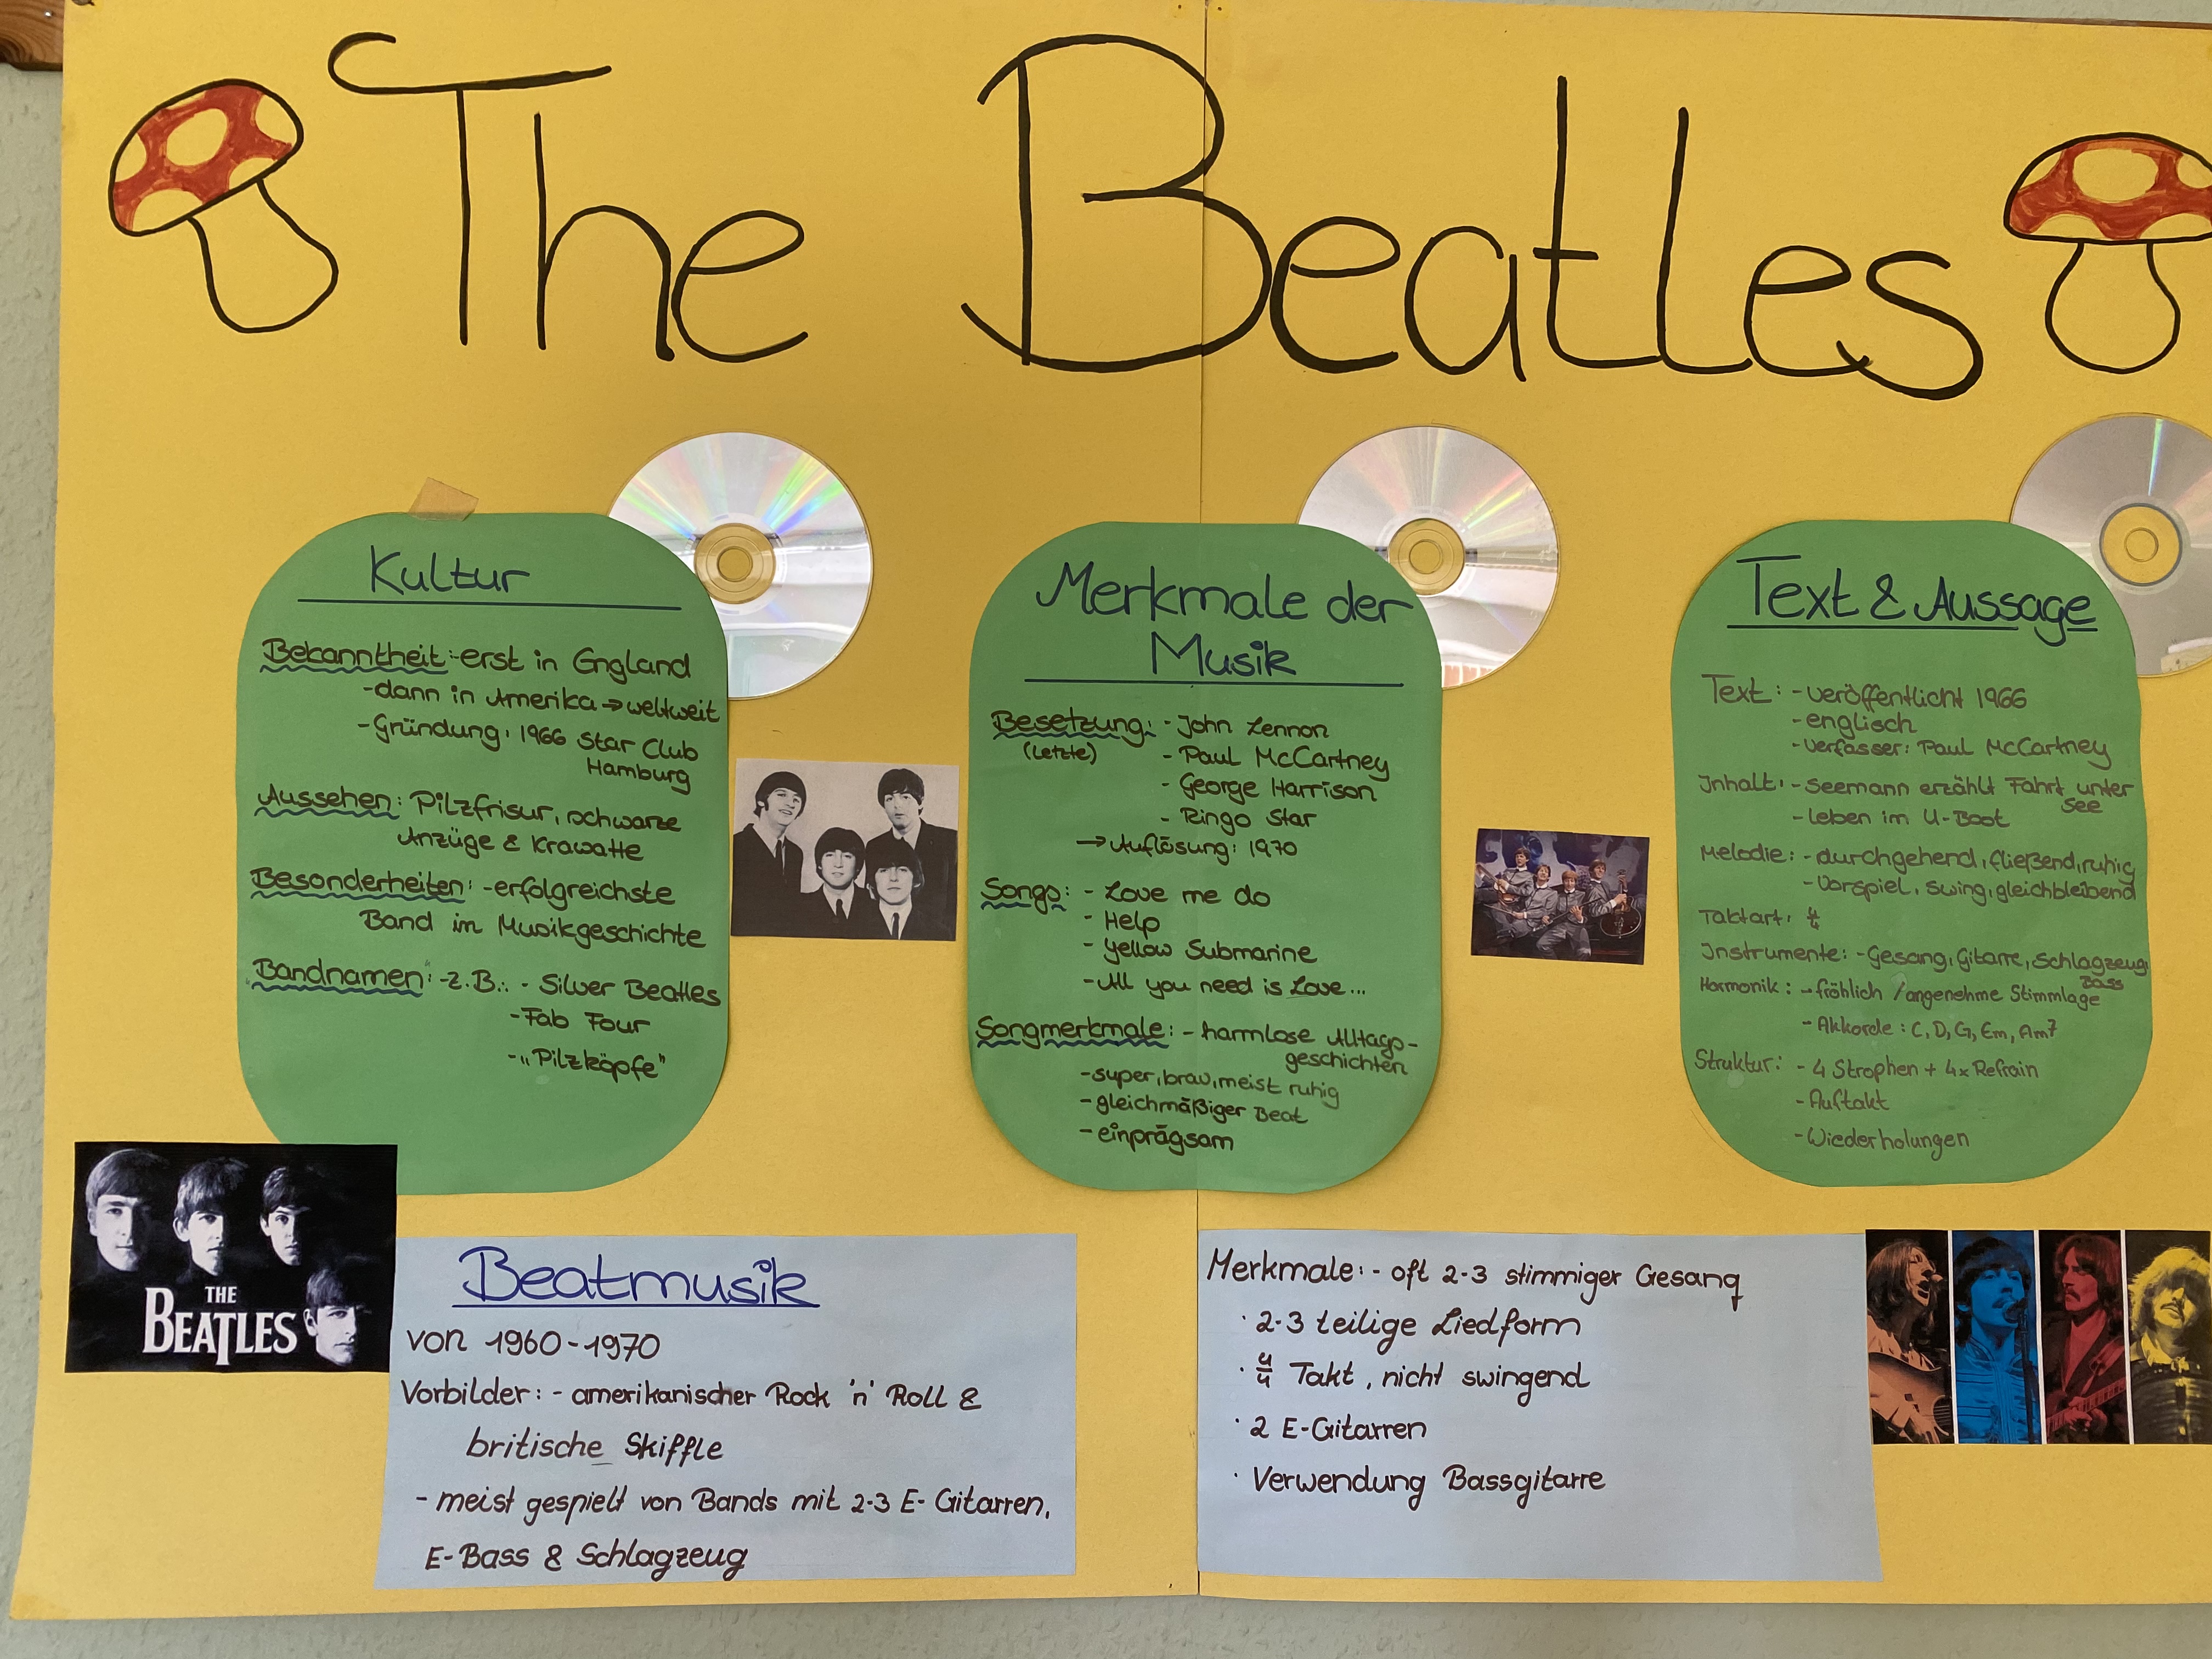 The Beatles
Kultur
Bekanntheit: -erst in England
-dann in Amerika → weltweit
-Gründung: 1966 Star Club
Hamburg
Aussehen: Pilzfrisur, schwarze
Anzüge & Krawatte
Besonderheiten: -erfolgreichste
Band in Musikgeschichte
Bandnamen: -z.B.: - Silver Beatles
-Fab Four
-„Pilzköpfe"
Merkmale der
Musik
Besetzung: - John Lennon
(letzte)
- Paul McCartney
- George Harrison
- Ringo Star
→ Auflösung: 1970
Songs: - Love me do
- Help
- Yellow Submarine
- All you need is Love...
Songmerkmale: - harmlose Alltags-
geschichten
-super, brav, meist ruhig
-gleichmäßiger Beat
-einprägsam
Text & Aussage
Text: - veröffentlicht 1966
-englisch
-Verfasser: Paul McCartney
Inhalt: - Seemann erzählt Fahrt unter
See
-leben im U-Boot
Melodie: - durchgehend, fließend, ruhig
-Vorspiel, swing, gleichbleibend
Taktart: 4/4
Instrumente: - Gesang, Gitarre, Schlagzeug,
Bass
Harmonik: - fröhlich / angenehme Stimmlage
- Akkorde: C, D, G, Em, Am7
Struktur: - 4 Strophen + 4x Refrain
- Auftakt
-Wiederholungen
THE
BEATLES
Beatmusik
von 1960-1970
Vorbilder: - amerikanischer Rock 'n' Roll &
britische Skiffle
- meist gespielt von Bands mit 2-3 E-Gitarren,
E-Bass & Schlagzeug
Merkmale: - oft 2-3 stimmiger Gesang
· 2-3 teilige Liedform
· 4/4 Takt, nicht swingend
· 2 E-Gitarren
· Verwendung Bassgitarre